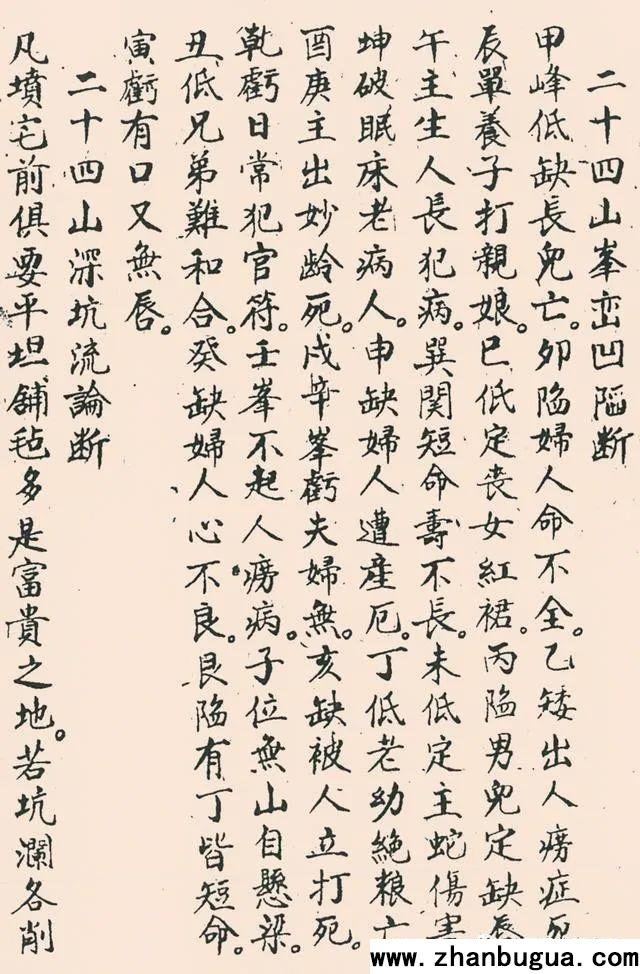 二十四山峯峦凹陷断
甲峰低缺長兒亡。卯陷婦人命不全。乙矮出人痨症死
辰單養子打親娘。巳低定丧女紅裙。丙陷男兒定缺唇
午主生人長犯病。巽関短命壽不長。未低定主蛇傷害
坤破眠床老病人。申缺婦人遭產厄。丁低老幼絶粮亡
酉庚主出妙齡死。戌辛峯虧夫婦無。亥缺被人立打死。
乾虧日常犯官符。壬峯不起人痨病。子位無山自懸梁。
丑低兄弟難和合。癸缺婦人心不良。艮陷有丁皆短命。
寅虧有口又無唇。
二十四山深坑流論断
凡墳宅前俱要平坦鋪毡多是富貴之地。若坑瀾各削
www.zhanbugua.com